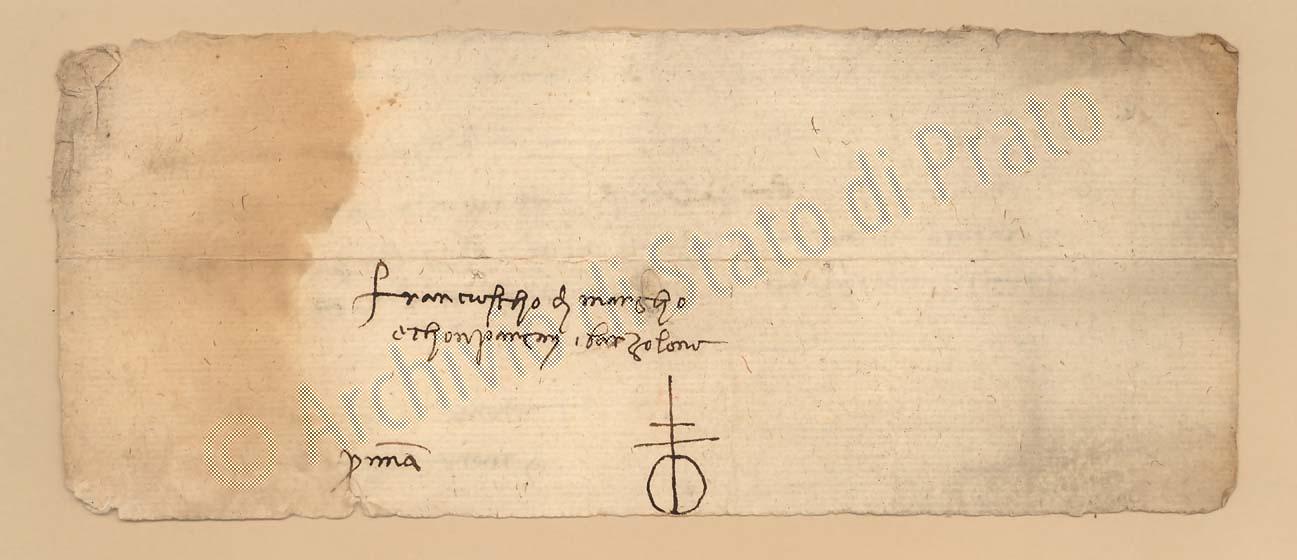 Francescho di Marcho
e chonpangni i Barzalona
p̄rima
© Archivio di Stato di Prato